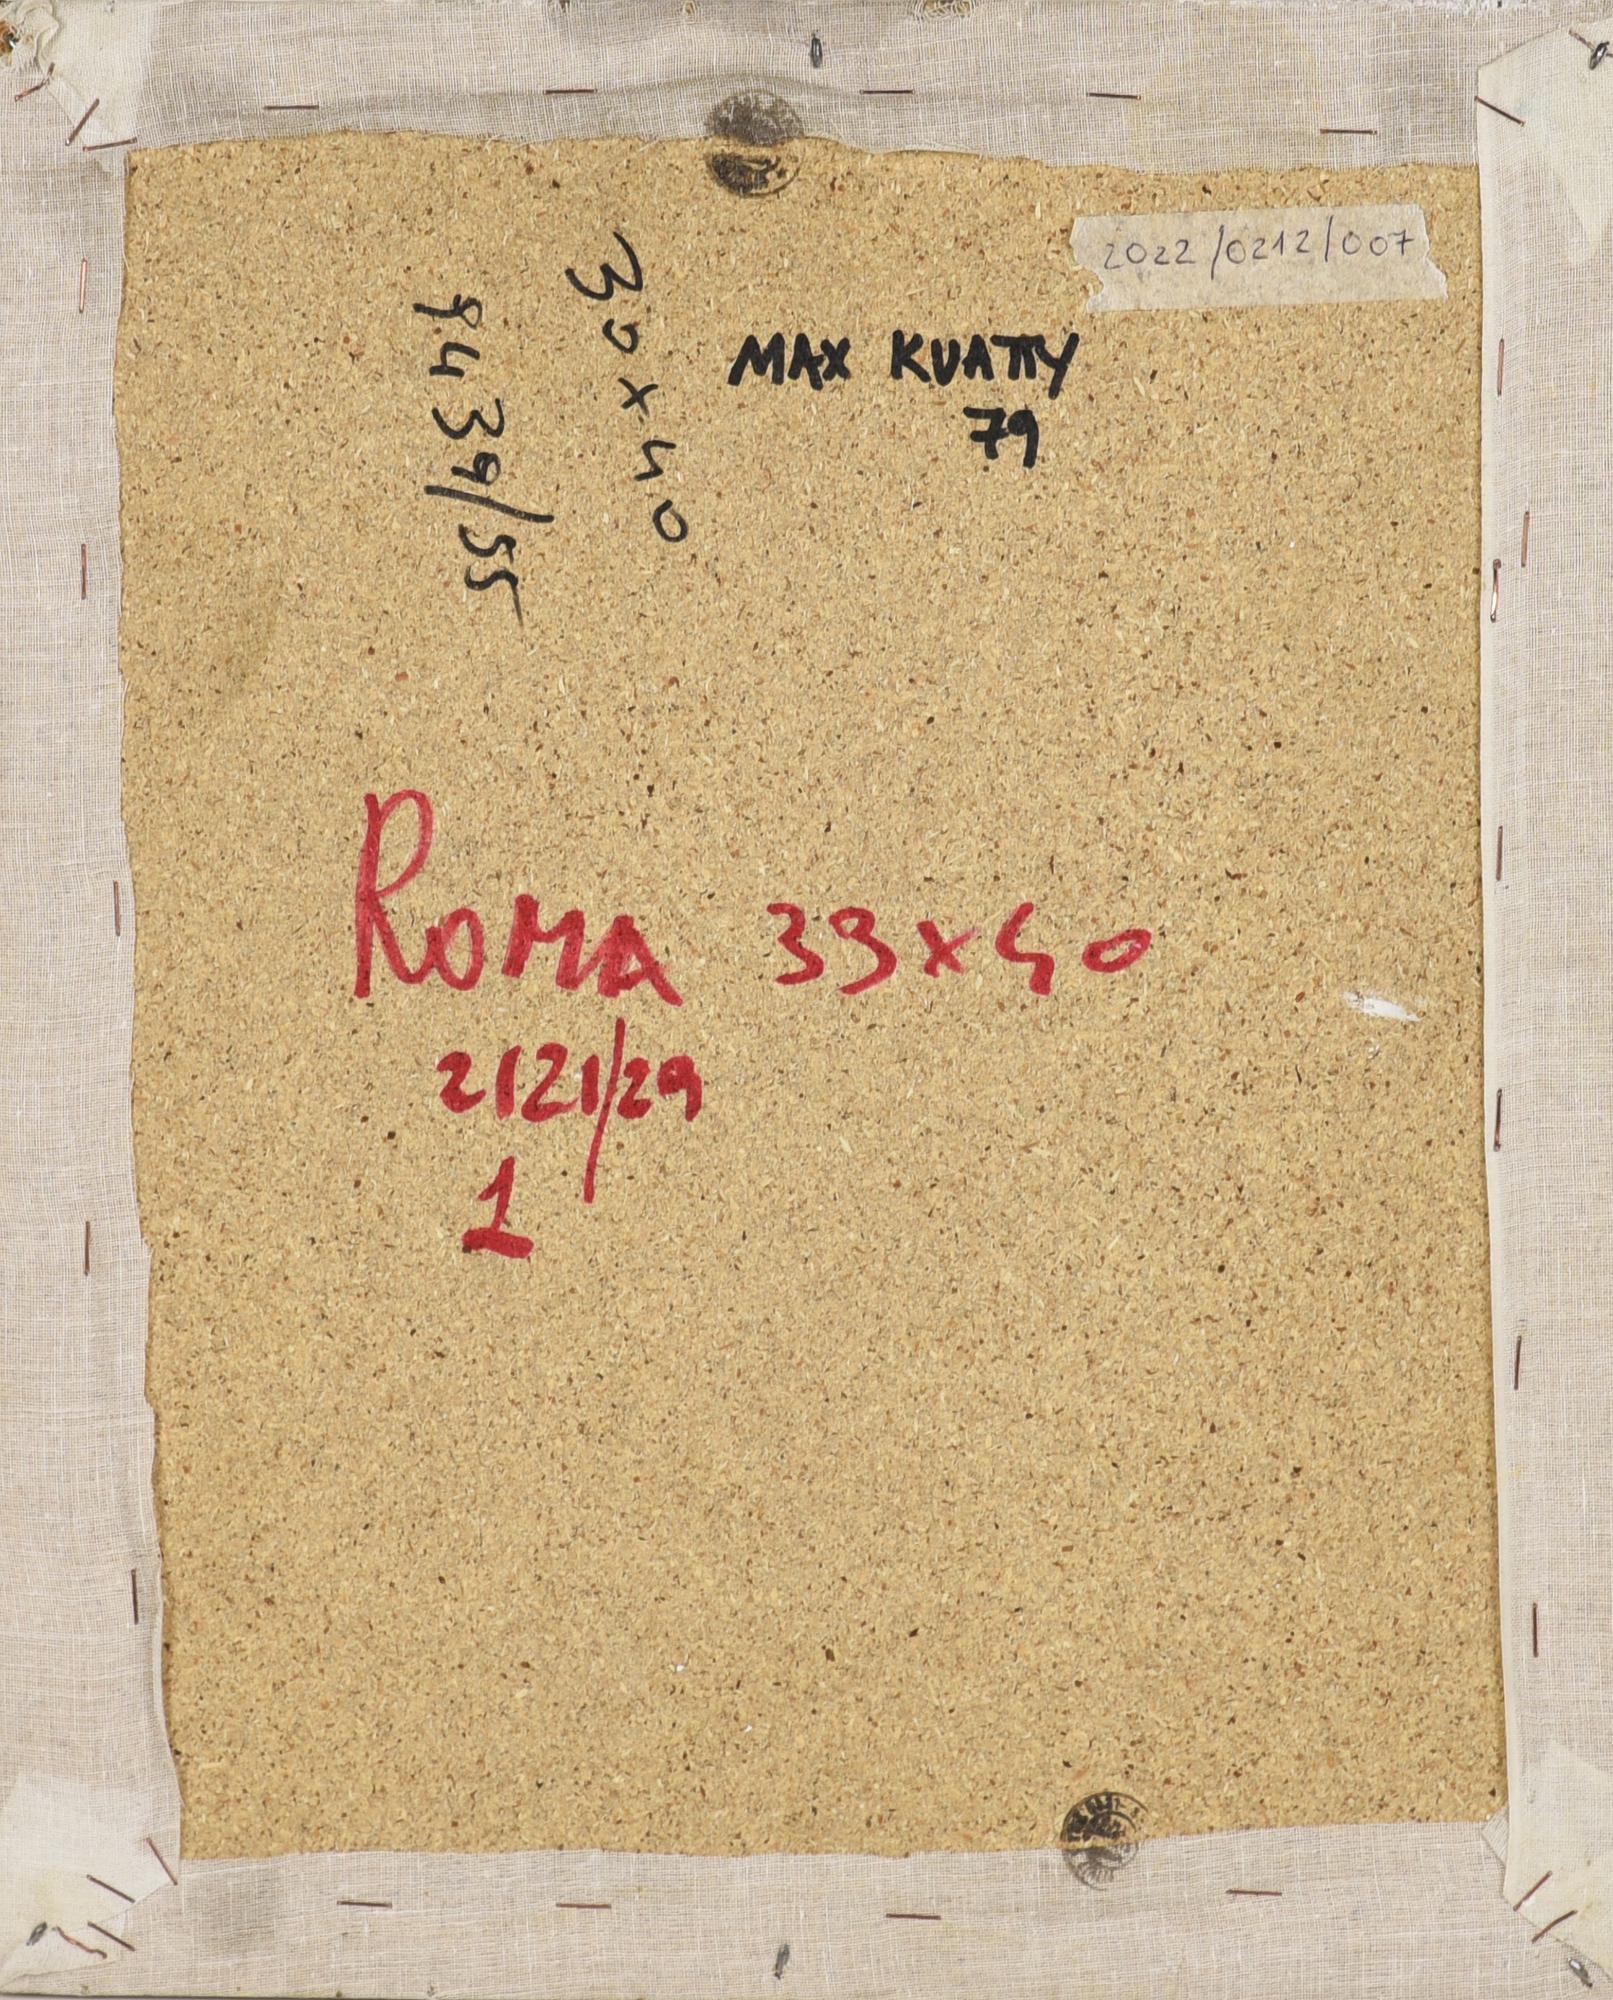 2022/0212/007
MAX KUATTY
79
30x40
9439/55
ROMA 33x40
2121/29
1